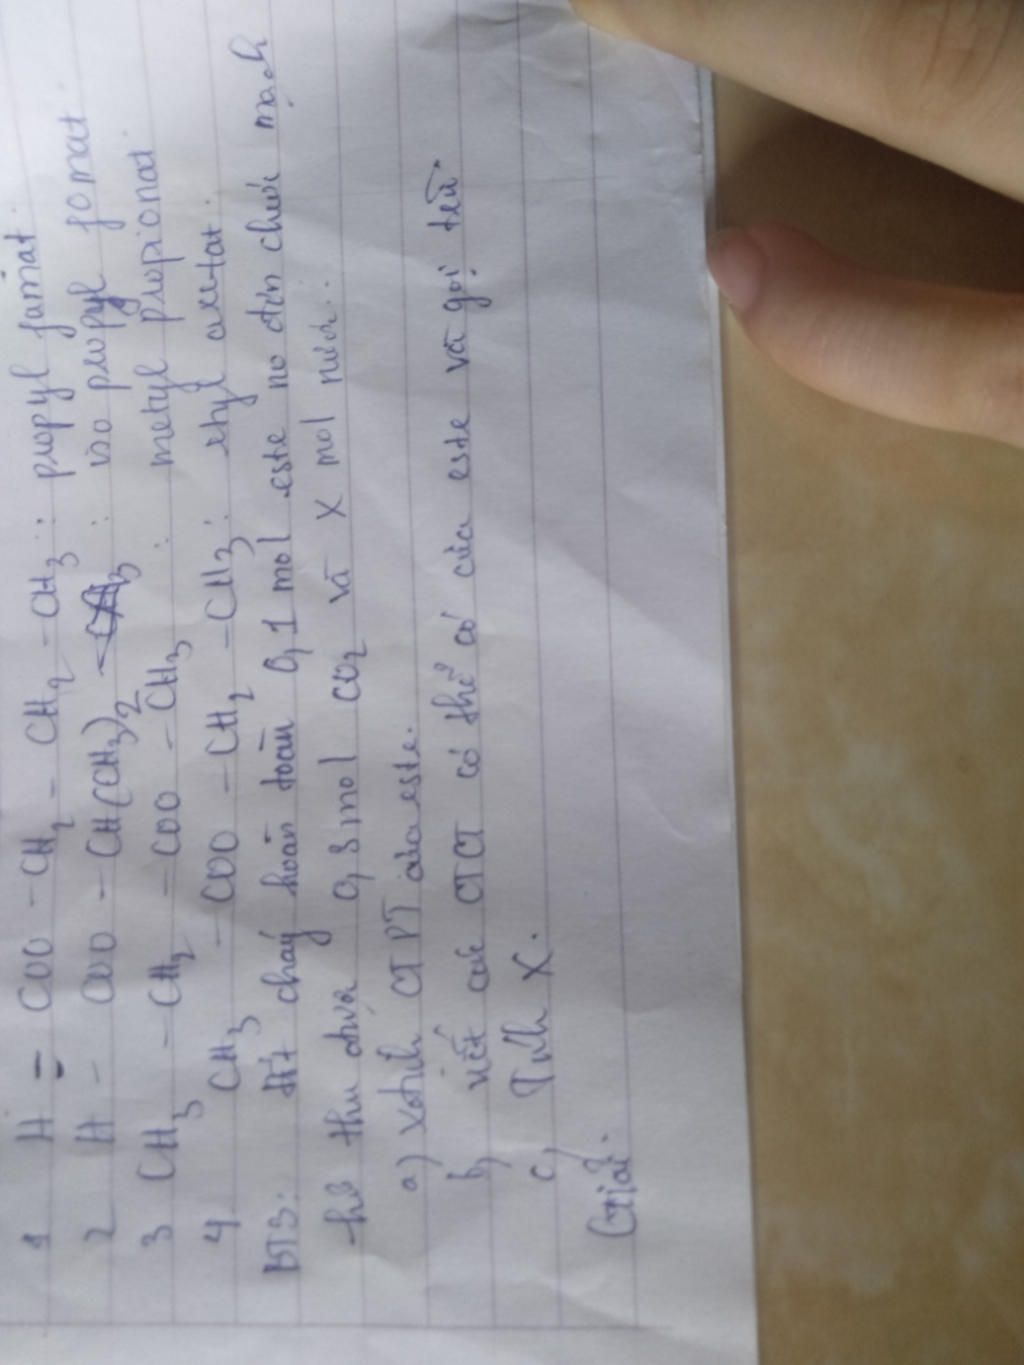 1 H - COO - CH2 - CH2 - CH3 : propyl fomat.
2 H - COO - CH(CH3)2 : iso propyl fomat.
3 CH3 - CH2 - COO - CH3 : metyl propionat.
4 CH3 - COO - CH2 - CH3 : etyl axetat.
BT3: đốt cháy hoàn toàn 0,1 mol este no đơn chức mạch
hở thu được 0,3 mol CO2 và X mol nước.
a) Xđịnh CTPT của este.
b, viết các CTCT có thể có của este và gọi tên.
c, Tính X.
Giải.